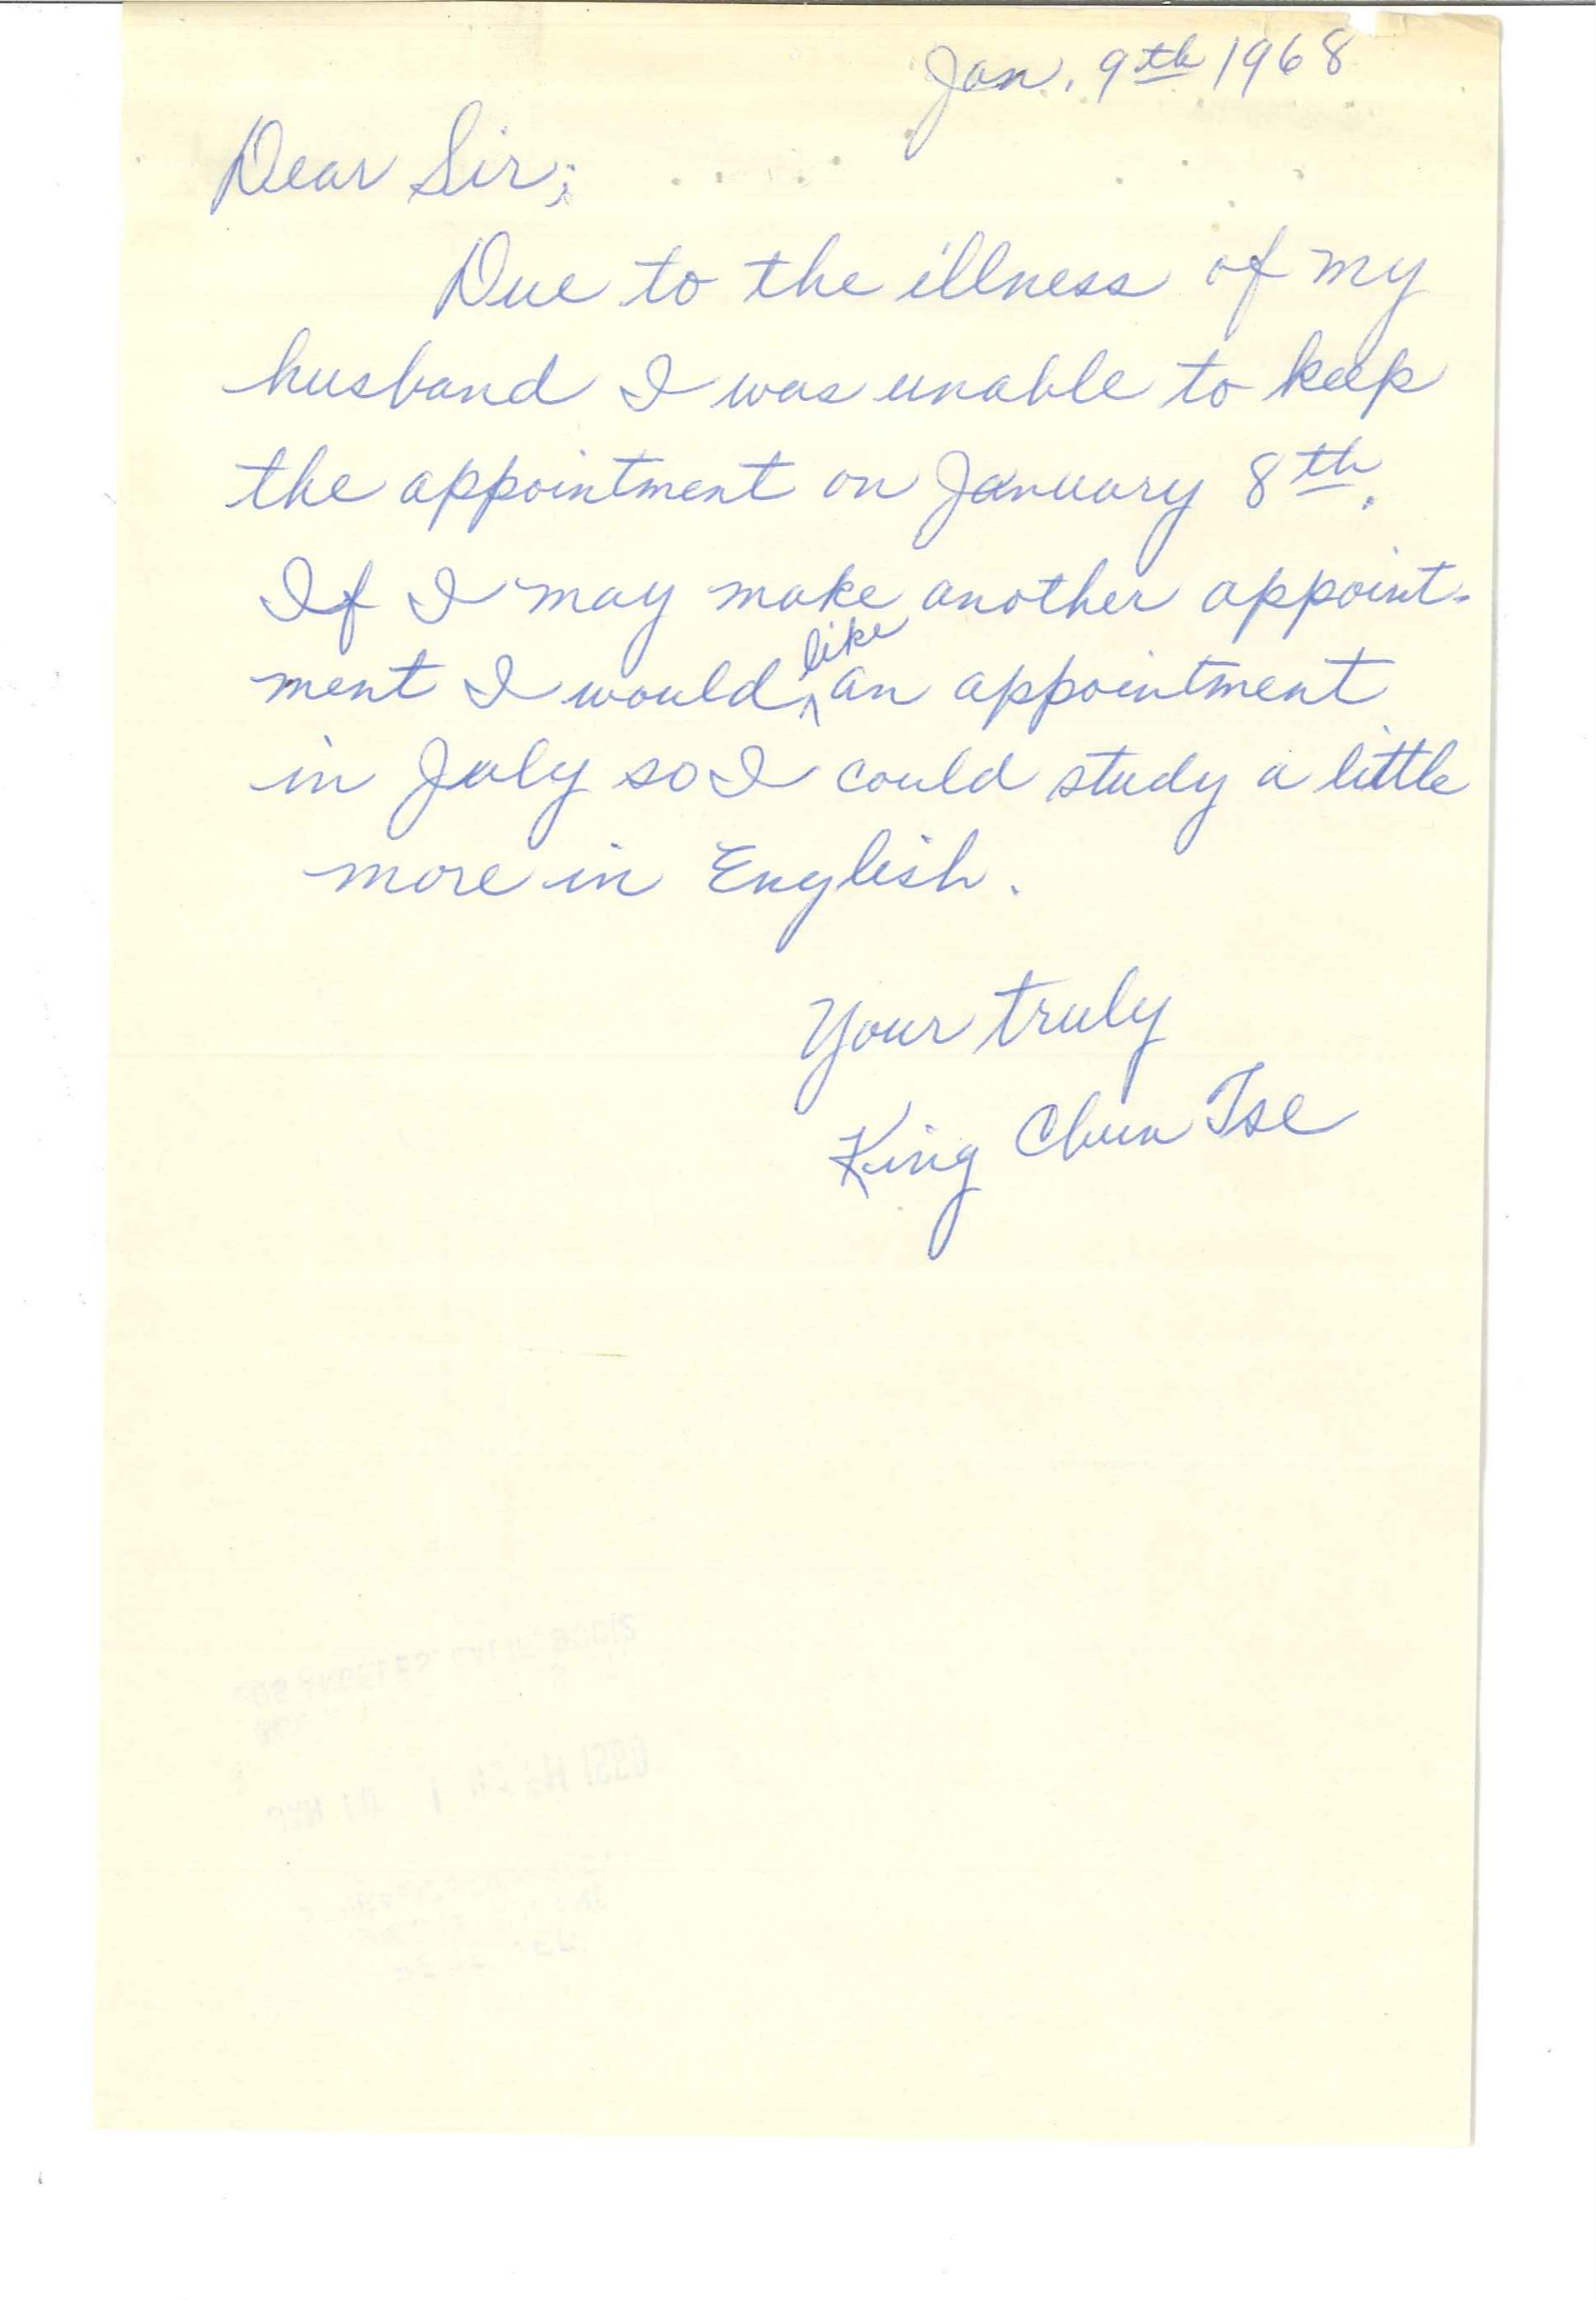 Jan. 9th 1968
Dear Sir;
Due to the illness of my
husband I was unable to keep
the appointment on January 8th.
If I may make another appoint-
ment I would like an appointment
in July so I could study a little
more in English.
Your truly
King Chun Tse